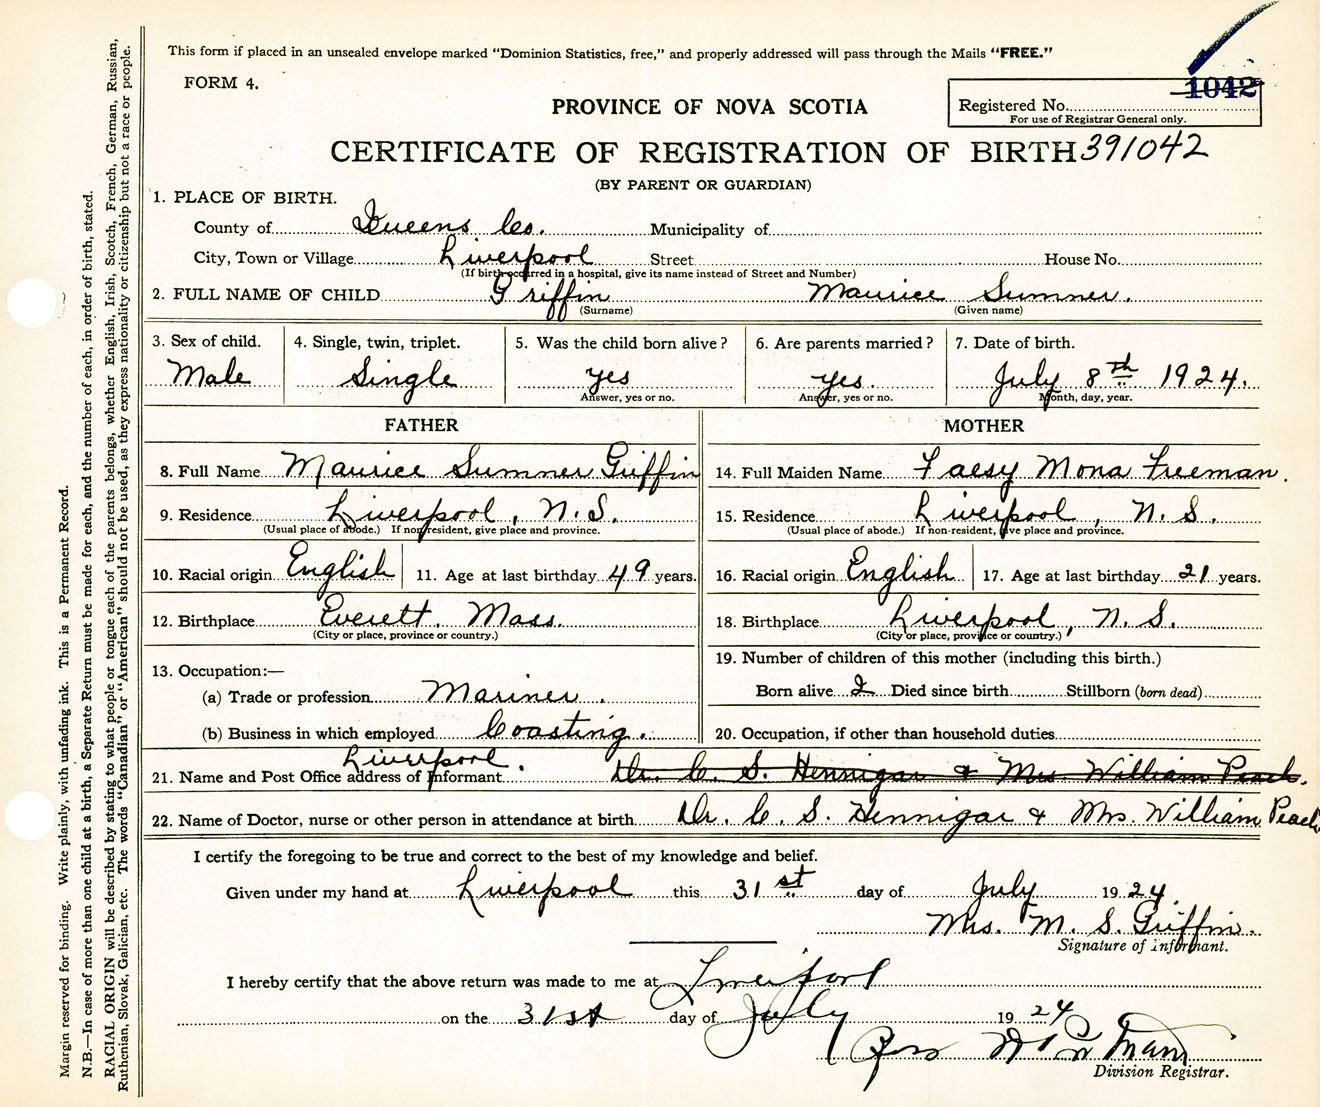 This form if placed in an unsealed envelope marked "Dominion Statistics, free," and properly addressed will pass through the Mails "FREE."
FORM 4.
1042
PROVINCE OF NOVA SCOTIA
Registered No.
For use of Registrar General only.
CERTIFICATE OF REGISTRATION OF BIRTH 391042
(BY PARENT OR GUARDIAN)
1. PLACE OF BIRTH.
County of Queens Co. Municipality of
City, Town or Village Liverpool Street House No.
(If birth occurred in a hospital, give its name instead of Street and Number)
2. FULL NAME OF CHILD Griffin Maurice Sumner.
(Surname) (Given name)
3. Sex of child. 4. Single, twin, triplet. 5. Was the child born alive? 6. Are parents married? 7. Date of birth.
Male Single yes yes. July 8th 1924.
Answer, yes or no. Answer, yes or no. Month, day, year.
FATHER MOTHER
8. Full Name Maurice Sumner Griffin 14. Full Maiden Name Faesy Mona Freeman.
9. Residence Liverpool, N.S. 15. Residence Liverpool, N.S.
(Usual place of abode.) If non-resident, give place and province. (Usual place of abode.) If non-resident, give place and province.
10. Racial origin English 11. Age at last birthday 49 years. 16. Racial origin English 17. Age at last birthday 21 years.
12. Birthplace Everett. Mass. 18. Birthplace Liverpool, N.S.
(City or place, province or country.) (City or place, province or country.)
13. Occupation:— 19. Number of children of this mother (including this birth.)
(a) Trade or profession Mariner. Born alive 2 Died since birth Stillborn (born dead)
(b) Business in which employed Coasting. 20. Occupation, if other than household duties
Liverpool.
21. Name and Post Office address of Informant Dr. C. S. Hennigar & Mrs William Peach.
22. Name of Doctor, nurse or other person in attendance at birth Dr. C. S. Hennigar & Mrs. William Peach
I certify the foregoing to be true and correct to the best of my knowledge and belief.
Given under my hand at Liverpool this 31st day of July 1924.
Mrs. M. S. Griffin.
Signature of Informant.
I hereby certify that the above return was made to me at Liverpool
on the 31st day of July 1924
Division Registrar.
Margin reserved for binding. Write plainly, with unfading ink. This is a Permanent Record.
N.B.—In case of more than one child at a birth, a Separate Return must be made for each, and the number of each, in order of birth, stated.
RACIAL ORIGIN will be described by stating to what people or tongue each of the parents belongs, whether English, Irish, Scotch, French, German, Russian,
Ruthenian, Slovak, Galician, etc. The words "Canadian" or "American" should not be used, as they express nationality or citizenship but not a race or people.